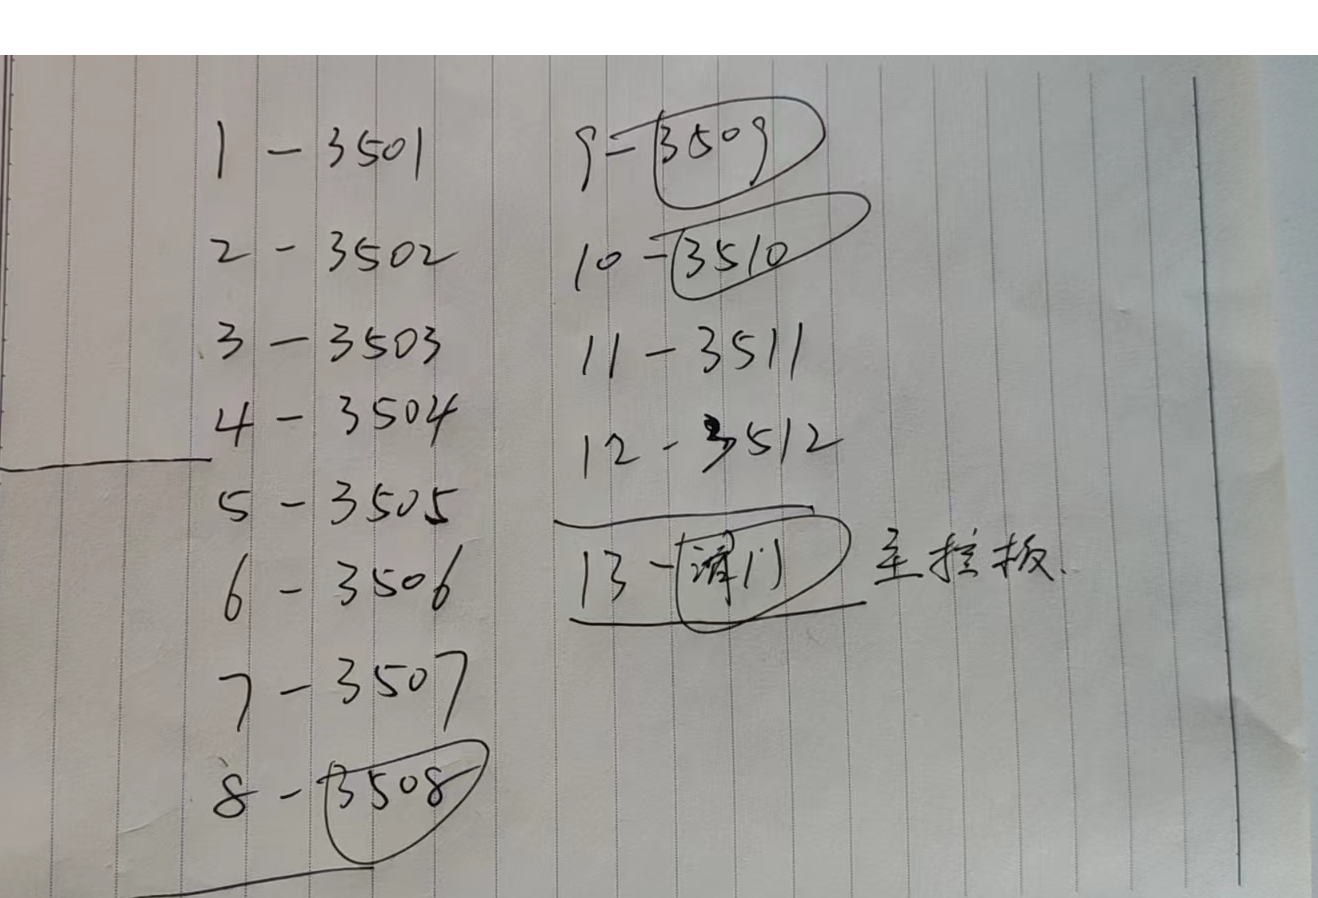 1 - 3501
2 - 3502
3 - 3503
4 - 3504
5 - 3505
6 - 3506
7 - 3507
8 - 3508
9 - 3509
10 - 3510
11 - 3511
12 - 3512
13 - 门 主控板.